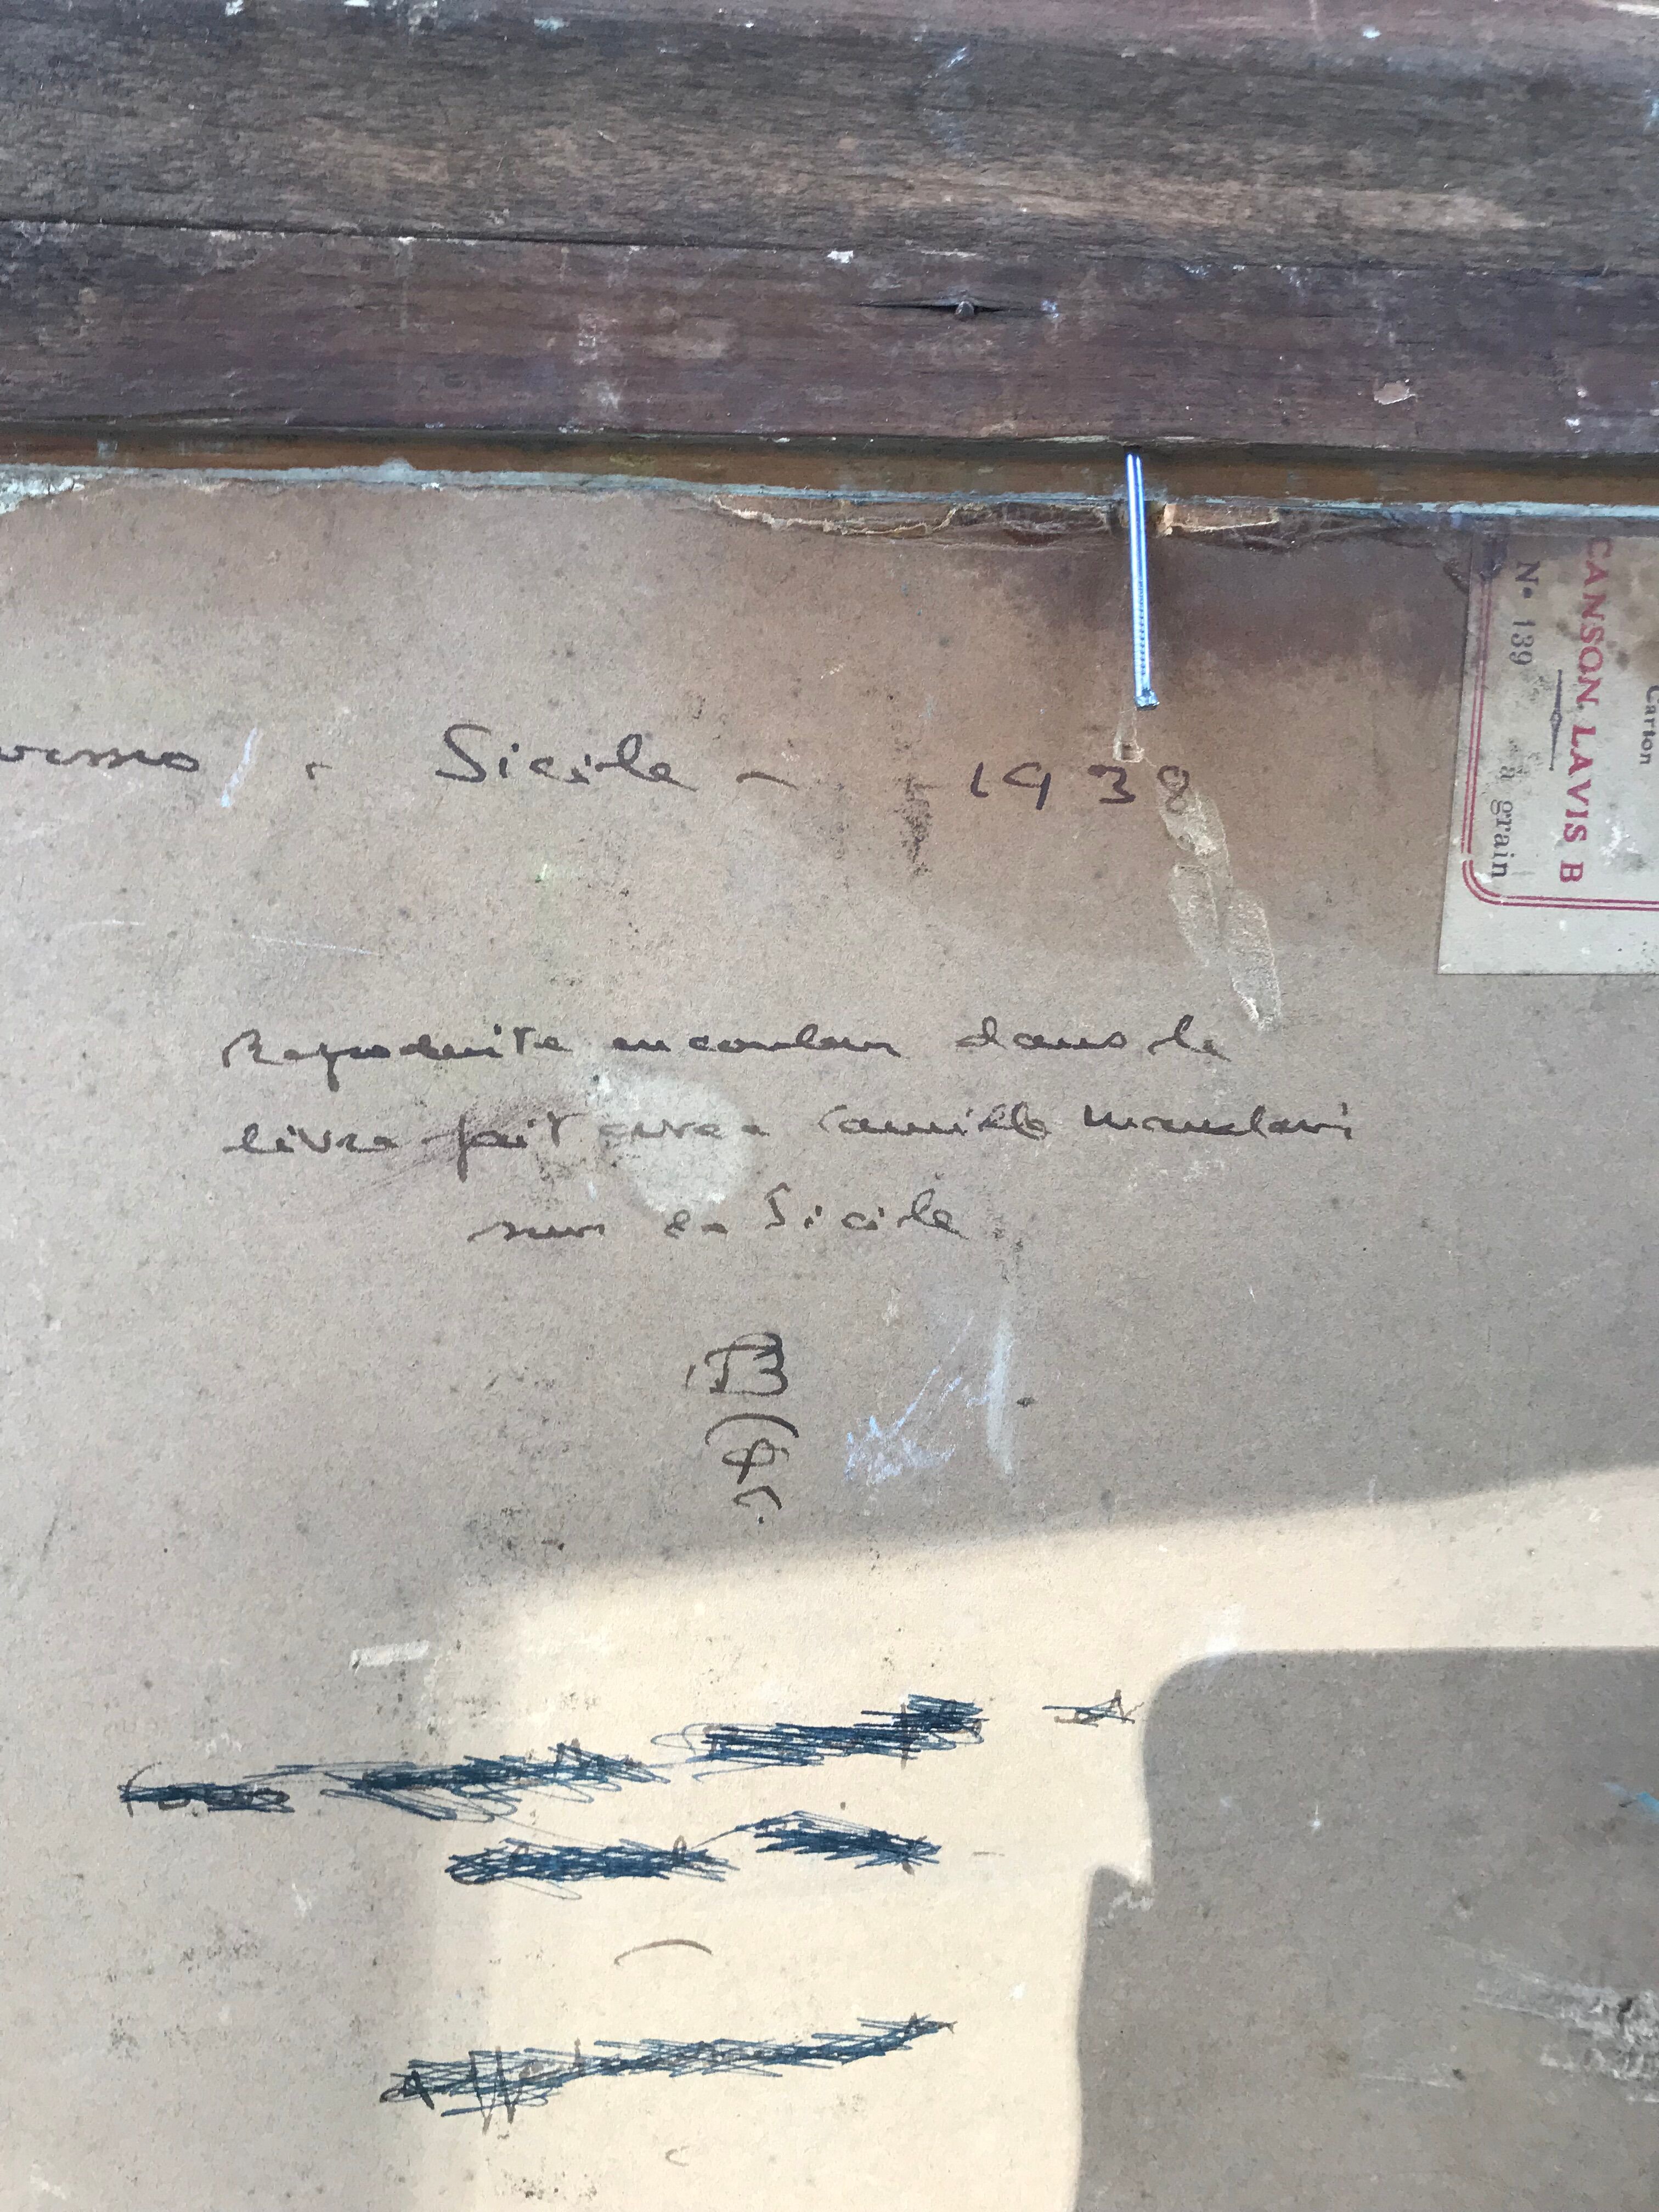 Sicile - 1938
Reproduite en couleur dans le
livre fait avec Camille Mauclair
sur la Sicile
B
CANSON LAVIS B
N° 139 à grain
Carton